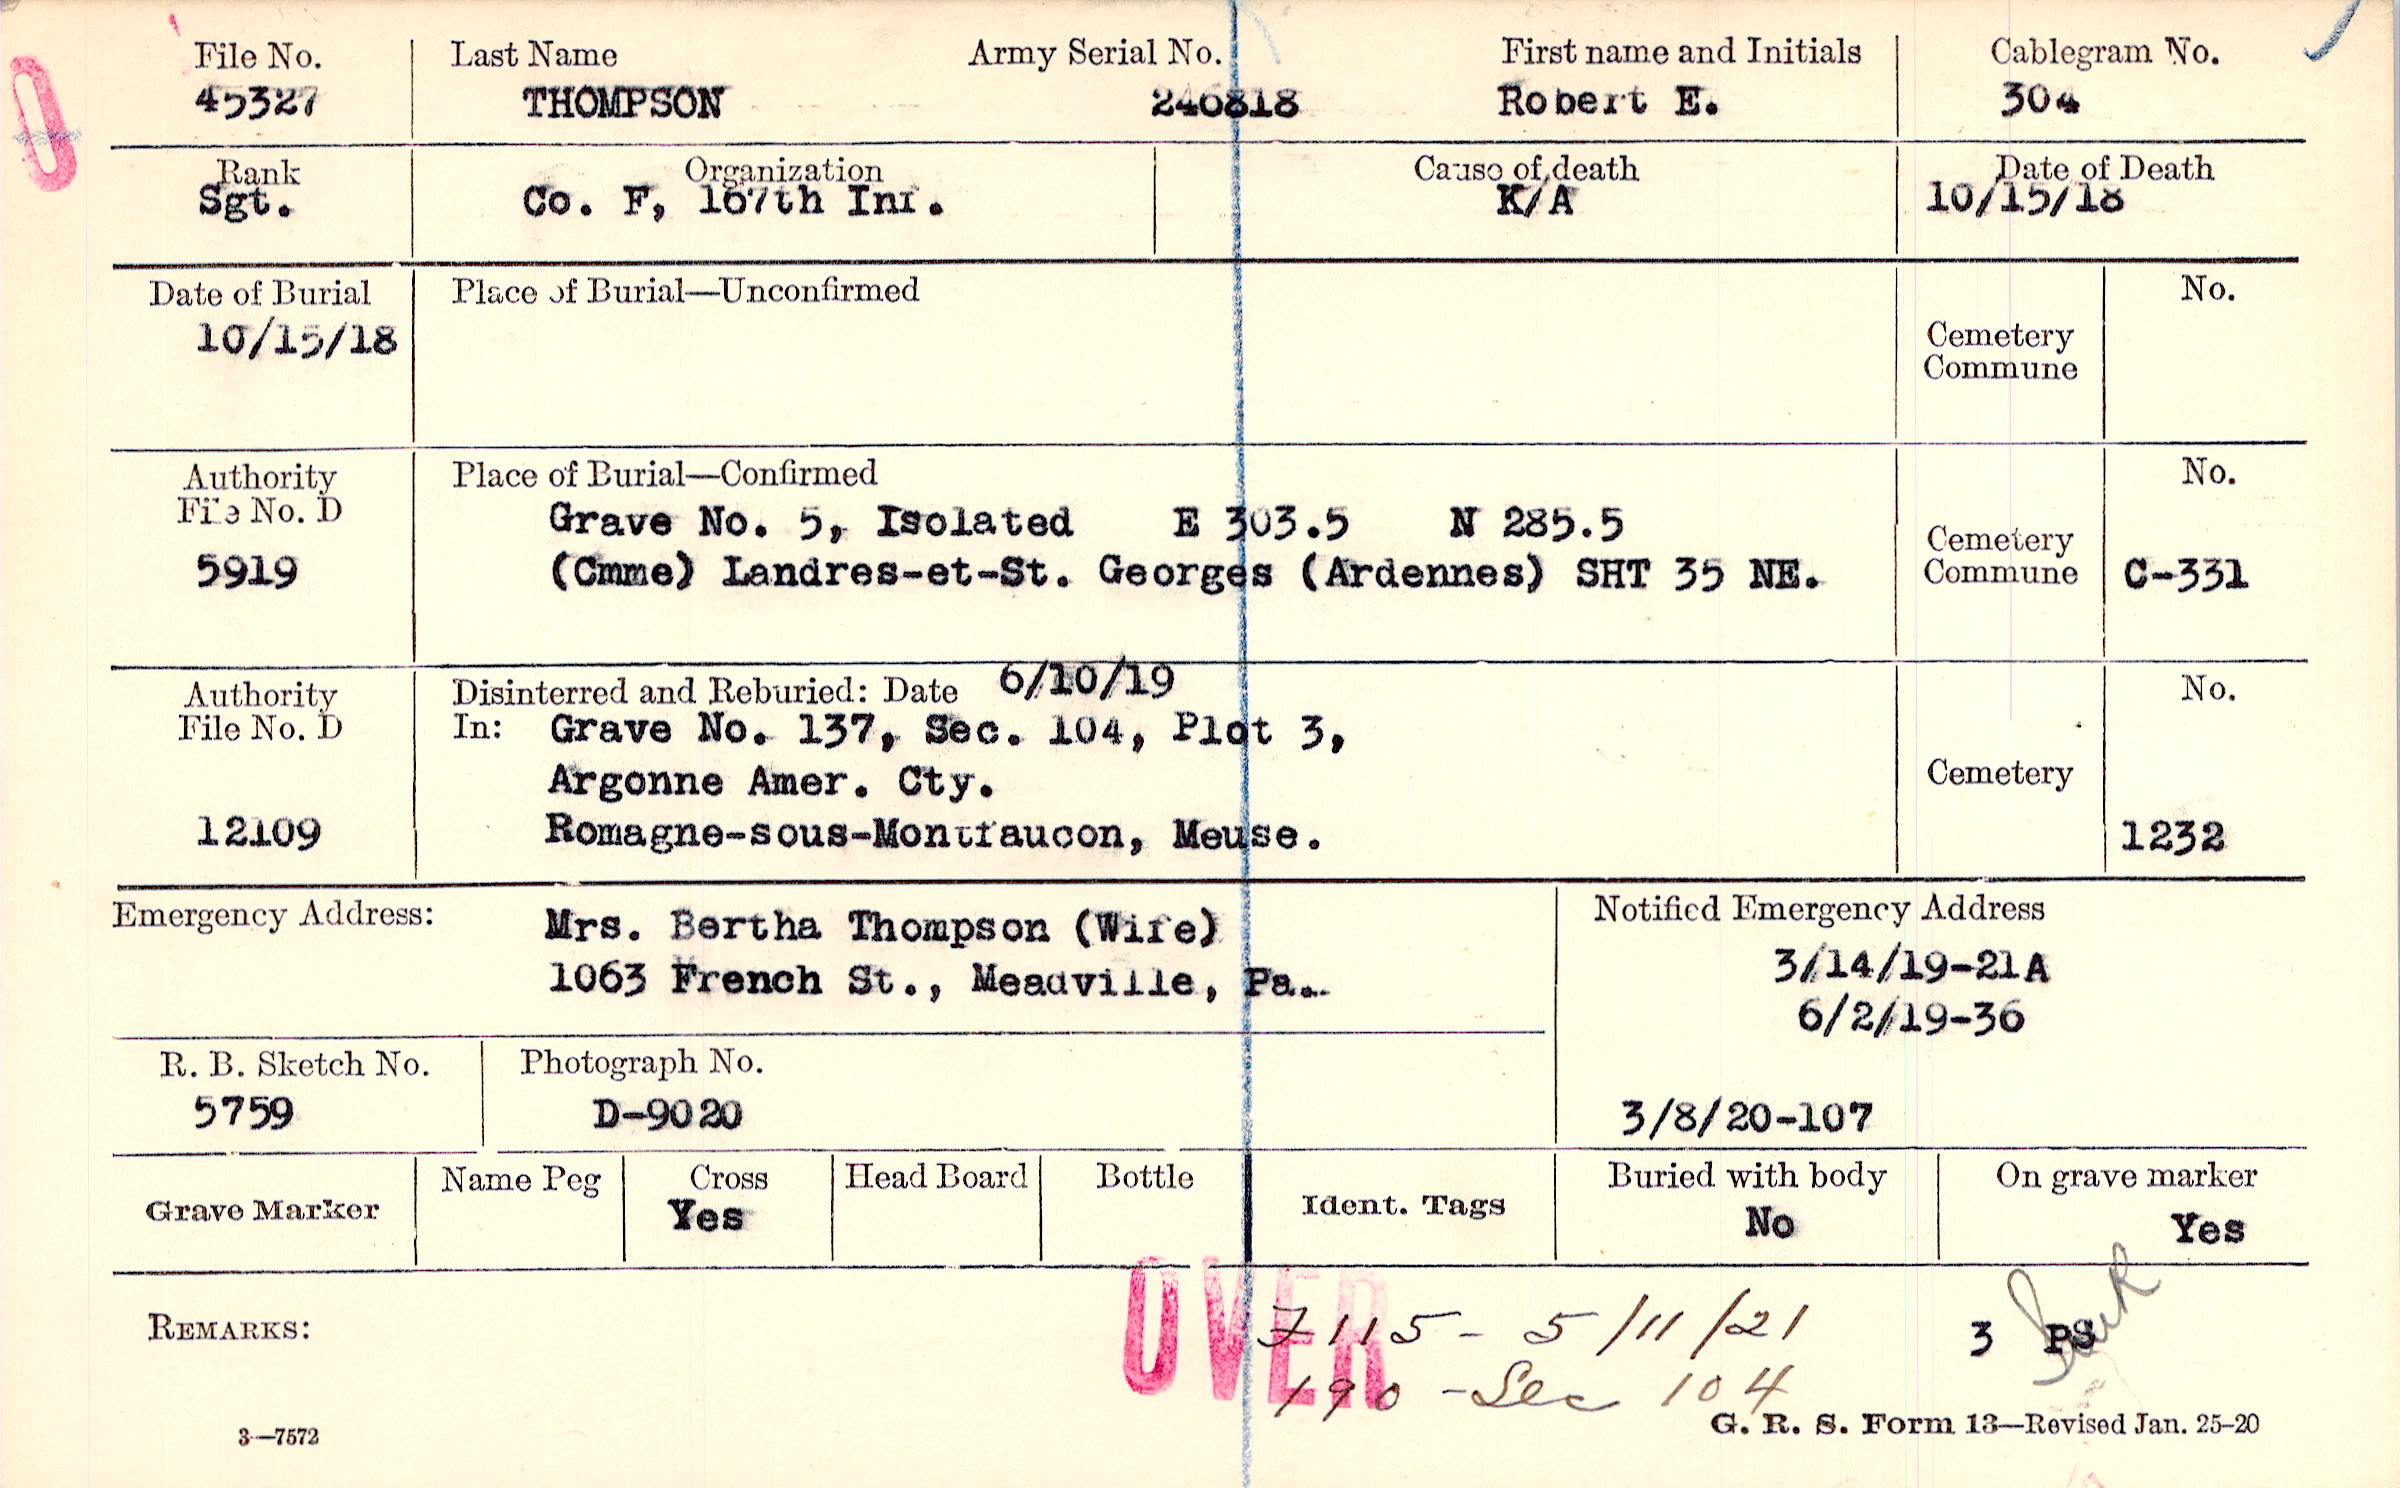 File No. Last Name Army Serial No. First name and Initials Cablegram No.
45327 THOMPSON 246818 Robert E. 304
Rank Organization Cause of death Date of Death
Sgt. Co. F, 167th Inf. K/A 10/15/18
Date of Burial Place of Burial—Unconfirmed No.
10/15/18 Cemetery
Commune
Authority Place of Burial—Confirmed No.
File No. D Grave No. 5, Isolated E 303.5 N 285.5 Cemetery
5919 (Cmme) Landres-et-St. Georges (Ardennes) SHT 35 NE. Commune C-331
Authority Disinterred and Reburied: Date 6/10/19 No.
File No. D In: Grave No. 137, Sec. 104, Plot 3,
Argonne Amer. Cty. Cemetery
12109 Romagne-sous-Montfaucon, Meuse. 1232
Emergency Address: Mrs. Bertha Thompson (Wife) Notified Emergency Address
1063 French St., Meadville, Pa. 3/14/19-21A
6/2/19-36
R. B. Sketch No. Photograph No.
5759 D-9020 3/8/20-107
Grave Marker Name Peg Cross Head Board Bottle Ident. Tags Buried with body On grave marker
Yes No Yes
OVER
REMARKS: 7115 - 5/11/21 3 PS
190 - Sec 104
3—7572 G. R. S. Form 13—Revised Jan. 25-20